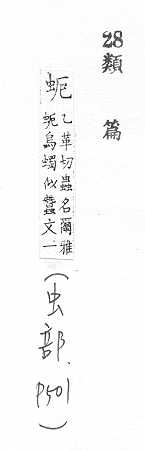 28類篇
蚅乙革切蟲名爾雅
蚅烏蠋似蠶文一
(虫部.P501)